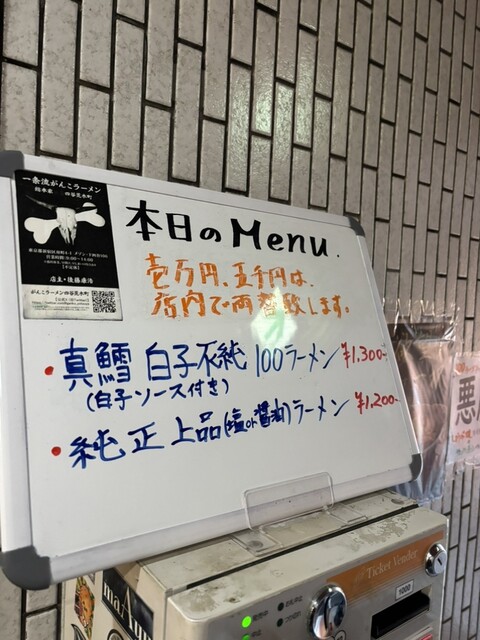 一条流がんこラーメン
総本家 四谷荒木町
店主・後藤康浩
がんこラーメン四谷荒木町
本日のMenu.
壱万円、五千円は、
店内で両替致します。
・真鱈 白子不純100ラーメン ¥1,300~
(白子ソース付き)
・純正上品(塩or醤油)ラーメン ¥1,200~
悪
Ticket Vender
1000